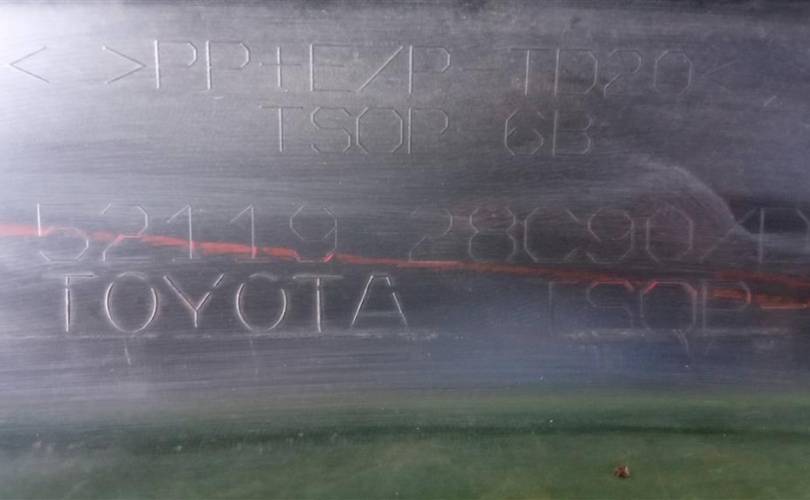 < >PP+E/P-TD20<
TSOP 6B
52119 28C90/P
TOYOTA TSOP